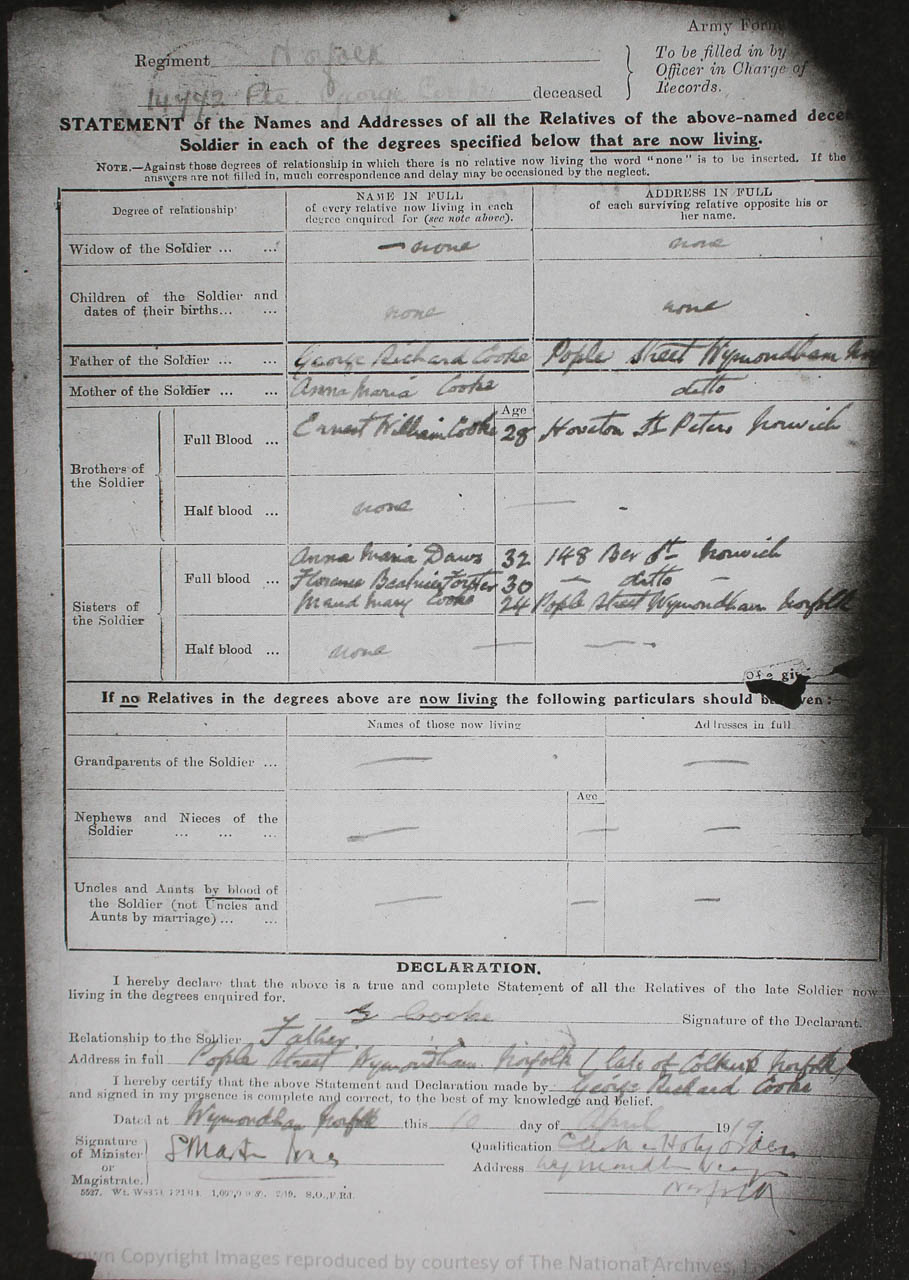 Army Form
Regiment Norfolk
To be filled in by
Officer in Charge of
Records.
14442 Pte. George Cooke deceased
STATEMENT of the Names and Addresses of all the Relatives of the above-named dece
Soldier in each of the degrees specified below that are now living.
NOTE.—Against those degrees of relationship in which there is no relative now living the word "none" is to be inserted. If the
answers are not filled in, much correspondence and delay may be occasioned by the neglect.
Degree of relationship
NAME IN FULL
of every relative now living in each
degree enquired for (see note above).
ADDRESS IN FULL
of each surviving relative opposite his or
her name.
Widow of the Soldier ... ... none none
Children of the Soldier and
dates of their births... ... none none
Father of the Soldier ... ... George Richard Cooke Pople Street Wymondham
Mother of the Soldier ... ... Anna Maria Cooke ditto
Age
Brothers of
the Soldier
Full Blood ... Ernest William Cooke 28 Hoveton St Peters Norwich
Half blood ... none — -
Sisters of
the Soldier
Full blood ... Anna Maria Daws 32 148 Ber St Norwich
Florence 30 — ditto —
Maud Mary Cooke 24 Pople Street Wymondham Norfolk
Half blood ... none — —
Of a gi
If no Relatives in the degrees above are now living the following particulars should be given:
Names of those now living
Addresses in full
Grandparents of the Soldier ... — —
Age
Nephews and Nieces of the
Soldier ... ... ... — — —
Uncles and Aunts by blood of
the Soldier (not Uncles and
Aunts by marriage) ... ... — — —
DECLARATION.
I hereby declare that the above is a true and complete Statement of all the Relatives of the late Soldier now
living in the degrees enquired for.
G Cooke Signature of the Declarant.
Relationship to the Soldier Father
Address in full Pople Street Wymondham Norfolk (late of Norfolk)
I hereby certify that the above Statement and Declaration made by George Richard Cooke
and signed in my presence is complete and correct, to the best of my knowledge and belief.
Dated at Wymondham Norfolk this 10 day of April 1919.
Signature
of Minister
or
Magistrate.
Qualification Clerk in Holy Orders
Address Wymondham
Norfolk
S.O., F.Rd.
Crown Copyright Images reproduced by courtesy of The National Archives,